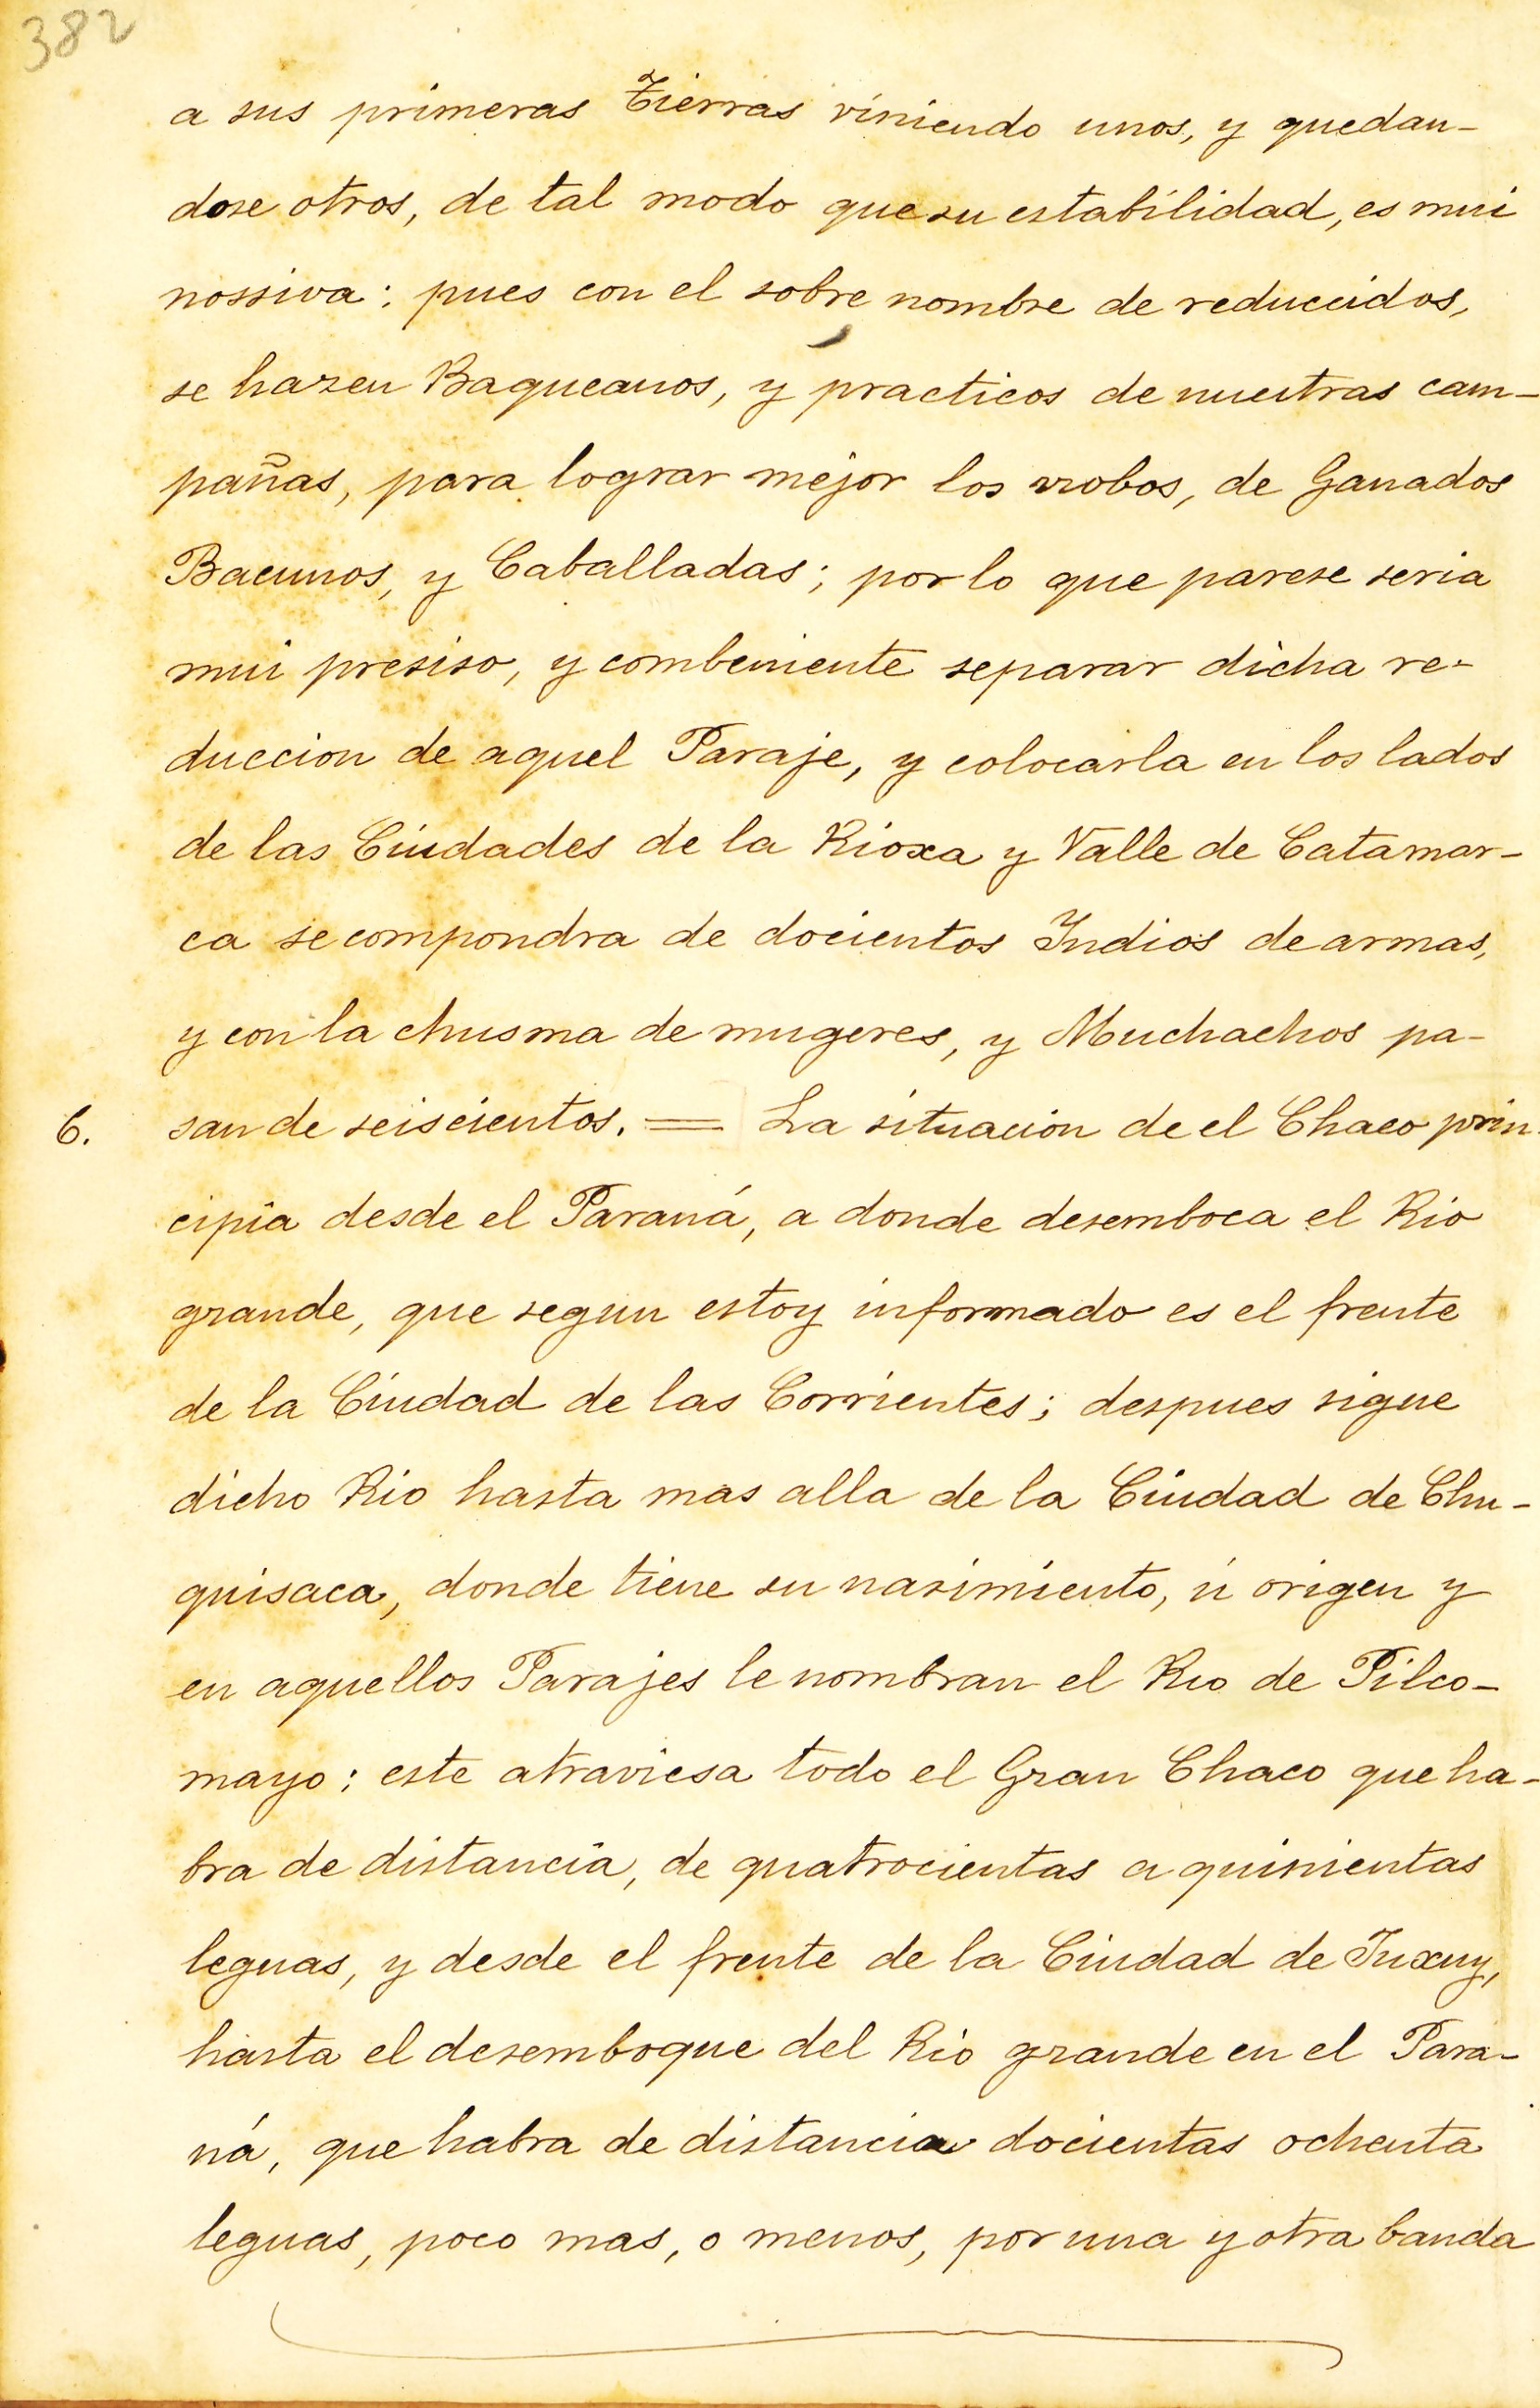 382
a sus primeras Tierras viniendo unos, y quedan-
dose otros, de tal modo que su estabilidad, es mui
nossiva: pues con el sobre nombre de reduccidos,
se hazen Baqueanos, y practicos de nuestras cam-
pañas, para lograr mejor los rrobos, de Ganados
Bacunos, y Caballadas; por lo que parese seria
mui presiso, y combeniente separar dicha re-
duccion de aquel Paraje, y colocarla en los lados
de las Ciudades de la Rioxa y Valle de Catamar-
ca se compondra de docientos Indios de armas,
y con la chusma de mugeres, y Muchachos pa-
6. san de seiscientos. = La situacion de el Chaco prin
cipia desde el Paraná, a donde desemboca el Rio
grande, que segun estoy informado es el frente
de la Ciudad de las Corrientes; despues sigue
dicho Rio hasta mas alla de la Ciudad de Chu-
quisaca, donde tiene su nasimiento, ú origen y
en aquellos Parajes le nombran el Rio de Pilco-
mayo; este atraviesa todo el Gran Chaco que ha-
bra de distancia, de quatrocientas a quinientas
leguas, y desde el frente de la Ciudad de Juxuy,
hasta el desemboque del Rio grande en el Para-
ná, que habra de distancia docientas ochenta
leguas, poco mas, o menos, por una y otra banda